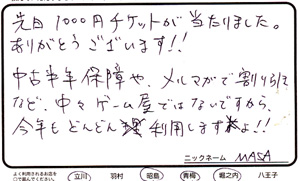 先日1000円チケットが当たりました。
ありがとうございます!!
中古半年保障や、メルマガで割り引き
など、中々ゲーム屋ではないですから、
今年もどんどん利用しますよ!!
ニックネーム MASA
よく利用されるお店を
○で囲んでください。
立川 羽村 昭島 青梅 堀之内 八王子